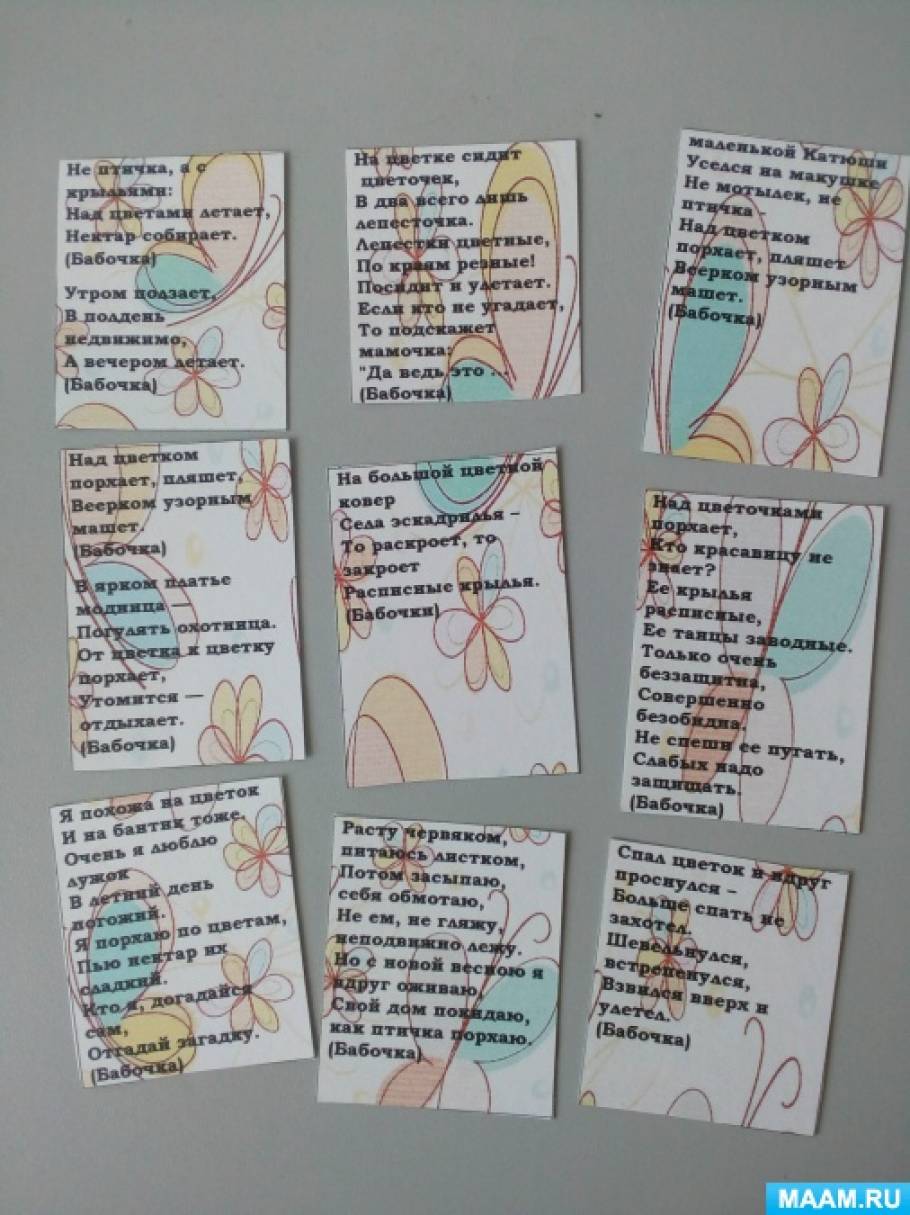 Не птичка, а с
крыльями:
Над цветами летает,
Нектар собирает.
(Бабочка)
Утром ползает,
В полдень
недвижимо,
А вечером летает.
(Бабочка)
На цветке сидит
цветочек,
В два всего лишь
лепесточка.
Лепестки цветные,
По краям резные!
Посидит и улетает.
Если кто не угадает,
То подскажет
мамочка:
"Да ведь это . .
(Бабочка)
маленькой Катюши
Уселся на макушке
Не мотылек, не
птичка -
Над цветком
порхает, пляшет
Веерком узорным
машет.
(Бабочка)
Над цветком
порхает, пляшет,
Веерком узорным
машет.
(Бабочка)
В ярком платье
модница —
Погулять охотница.
От цветка к цветку
порхает,
Утомится —
отдыхает.
(Бабочка)
На большой цветной
ковер
Села эскадрилья –
То раскроет, то
закроет
Расписные крылья.
(Бабочки)
Над цветочками
порхает,
Кто красавицу не
знает?
Ее крылья
расписные,
Ее танцы заводные.
Только очень
беззащитна,
Совершенно
безобидна.
Не спеши ее пугать,
Слабых надо
защищать.
(Бабочка)
Я похожа на цветок
И на бантик тоже.
Очень я люблю
лужок
В летний день
погожий.
Я порхаю по цветам,
Пью нектар их
сладкий.
Кто я, догадайся
сам,
Отгадай загадку.
(Бабочка)
Расту червяком,
питаюсь листком,
Потом засыпаю,
себя обмотаю,
Не ем, не гляжу,
неподвижно лежу.
Но с новой весною я
вдруг оживаю,
Свой дом покидаю,
как птичка порхаю.
(Бабочка)
Спал цветок и вдруг
проснулся –
Больше спать не
захотел.
Шевельнулся,
встрепенулся,
Взвился вверх и
улетел.
(Бабочка)
MAAM.RU